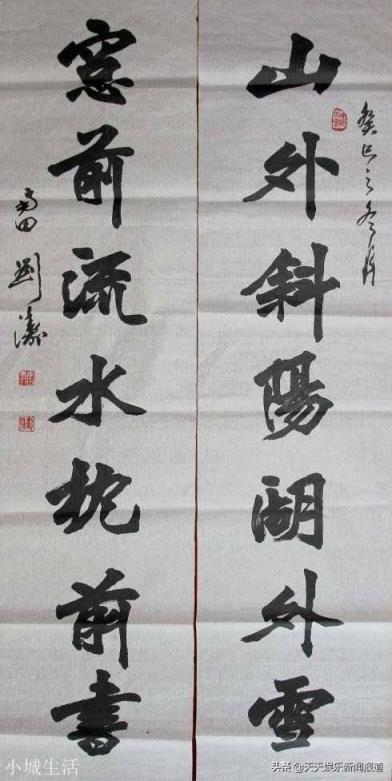 山外斜陽湖外雪
癸巳之冬月
窓前流水枕前書
劉
小城生活
头条@天天娱乐新闻报道